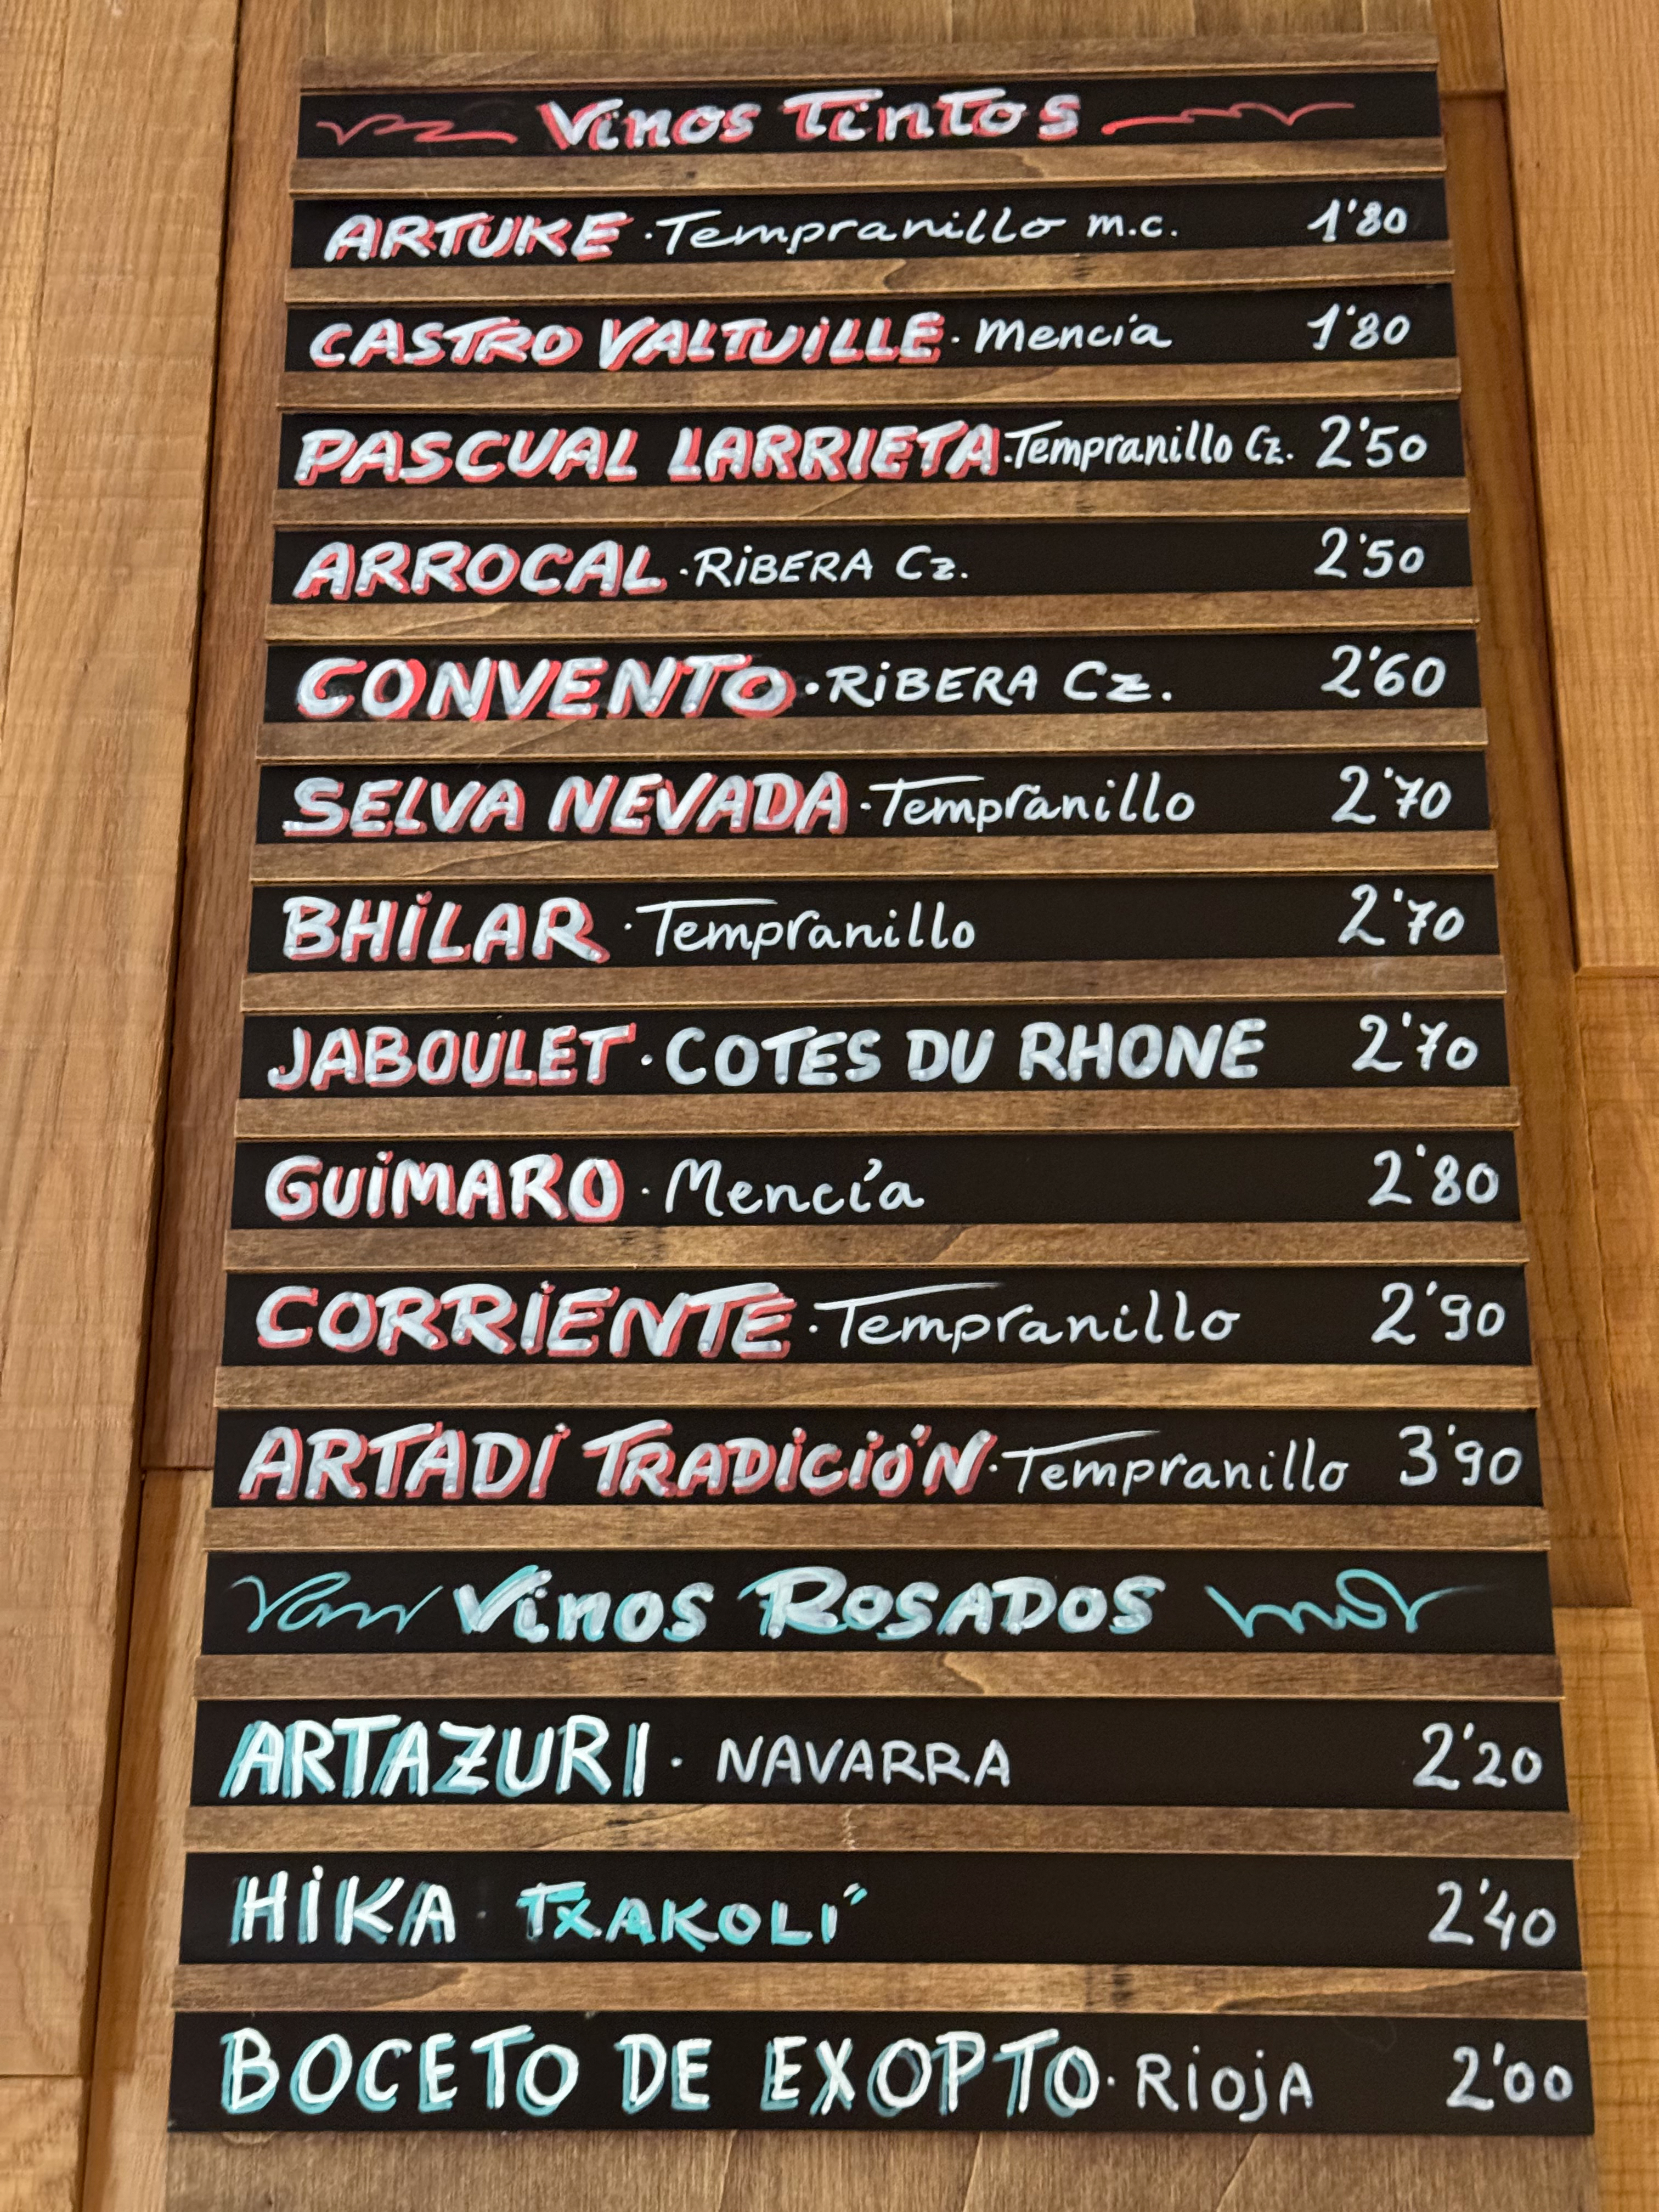 Vinos Tintos
ARTUKE · Tempranillo m.c. 1'80
CASTRO VALTUiLLE · Mencía 1'80
PASCUAL LARRIETA · Tempranillo Cz. 2'50
ARROCAL · RiBERA Cz. 2'50
CONVENTO · RiBERA Cz. 2'60
SELVA NEVADA · Tempranillo 2'70
BHiLAR · Tempranillo 2'70
JABOULET · COTES DU RHONE 2'70
GUiMARO · Mencía 2'80
CORRiENTE · Tempranillo 2'90
ARTADi TRADiCiÓN · Tempranillo 3'90
Vinos ROSADOS
ARTAZURI · NAVARRA 2'20
HiKA · TXAKOLÍ 2'40
BOCETO DE EXOPTO · RiojA 2'00